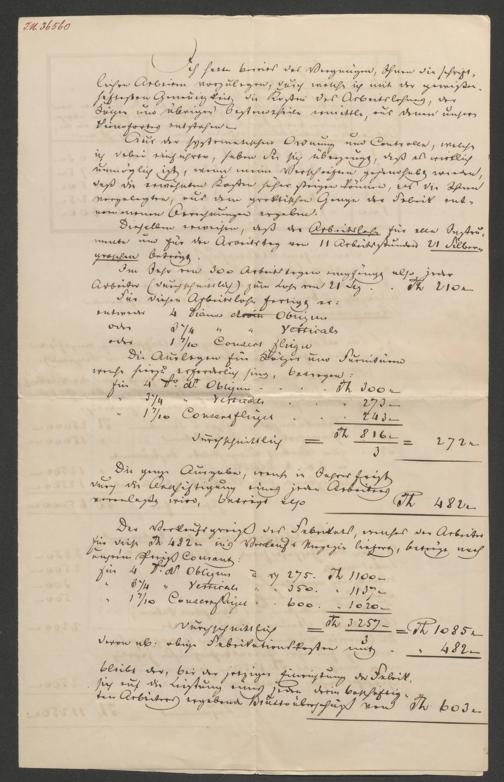 I.N. 36560
Ich hatte bereits das Vergnügen, Ihnen die schrift-
lichen Arbeiten vorzulegen, durch welche ich mit der gewissen-
haftesten Genauigkeit die Kosten des Arbeitslohnes, der
Hölzer und übrigen Bestandtheile ermittle, aus denen unsere
Pianofortes entstehen.
Aus der systematischen Ordnung und Controlle, welche
ich dabei einführte, haben Sie sich überzeugt, daß es wirklich
unmöglich ist, wenn meine Vorschriften gehandhabt werden,
daß die erwähnten Kosten höher steigen können, als die Ihnen
vorgelegten, aus dem praktischen Gange der Fabrik ent-
nommenen Berechnungen ergeben.
Dieselben erweisen, daß der Arbeitslohn für alle Instru-
mente und für den Arbeitstag von 11 Arbeitsstunden 21 Silber-
groschen beträgt.
Im Jahr von 300 Arbeitstagen empfängt also jeder
Arbeiter (durchschnittlich) zum Lohn von 21 Sg. . Th 210 —
Für diesen Arbeitslohn fertigt er:
entweder 4 Pianos Obliques
oder 3 1/4 " " Verticals
oder 1 7/10 Concert Flügel
Die Auslagen für Hölzer und Furnituren
welche hierzu erforderlich sind, betragen:
für 4 P. Obliques . . . Th 300 —
" 3 1/4 " Verticals . . . " 273 —
" 1 7/10 Concertflügel . . . " 243 —
durchschnittlich = Th 816 — = 272 —
3
Die ganze Ausgabe, welche in Jahres Frist
durch die Beschäftigung eines jeden Arbeiters
veranlaßt wird, beträgt also Th 482 —
Der Verkaufspreiß des Fabrikats, welches der Arbeiter
für diese Th 482 — ins Verkaufs Magazin liefert, beträgt nach
unserem Preiß Courant:
für 4 P. Obliques à 275. Th 1100 —
" 3 1/4 " Verticals " 350. " 1137 —
" 1 7/10 Concertflügel " 600. " 1020 —
durchschnittlich = Th 3257 — = Th 1085 —
3
davon ab: obige Fabrikationskosten mit . " 482 —
bleibt der, bei der jetzigen Einrichtung der Fabrik,
sich auf die Leistung eines jeden darin beschäftig-
ten Arbeiters ergebende Bruttoüberschuß von Th 603 —